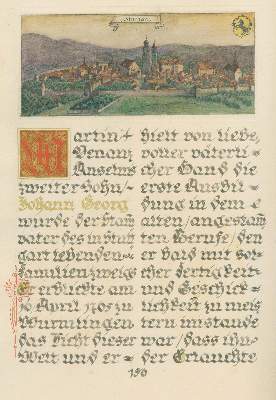 Stuttgart
Martin/
Venanz
Anselms
zweiter Sohn/
Johann Georg
wurde der Stam̄
vater des in Stutt
gart lebenden
Familienzweigs
Er erblickte am
10 April 1705 zu
Wurmlingen
das Licht dieser
Welt und er=
hielt von liebe,
voller väterli=
cher Hand die
erste Ausbil=
dung in dem
alten/angestam̄
ten Berufe/den
er bald mit sol=
cher Fertigkeit
und Geschick=
lichkeit zu meis
tern imstande
war/dass ihn
der Erlauchte
156